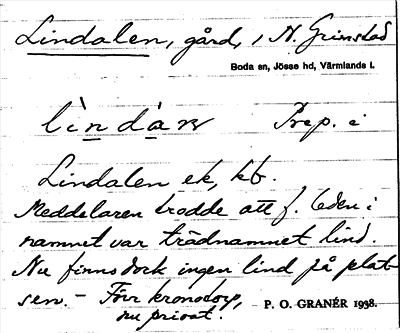 Lindalen, gård, i N. Grimstad
Boda sn, Jösse hd, Värmlands l.
lìndàṇ Prep. i
Lindalen ek, kb.
Meddelaren trodde att f. leden i
namnet var trädnamnet lind.
Nu finns dock ingen lind på plat-
sen. - Förr kronotorp,
nu privat.
P. O. GRANÉR 1938.